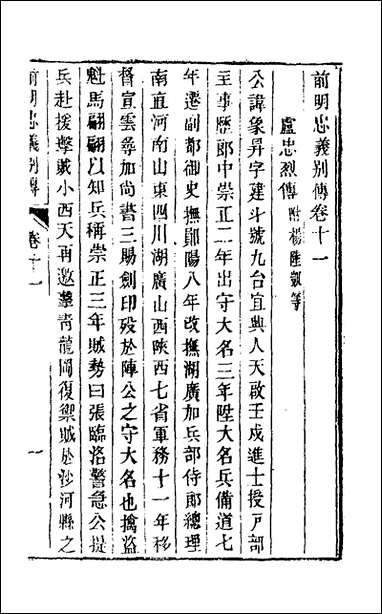 前明忠義别傳卷十一
盧忠烈傳 附楊陸凱等
公諱象昇字建斗號九台宜興人天啟壬戌進士授戸部
主事歷郎中崇正二年出守大名三年陞大名兵備道七
年遷副都御史撫鄖陽八年改撫湖廣加兵部侍郎總理
南直河南山東四川湖廣山西陝西七省軍務十一年移
督宣雲尋加尚書三賜劍印歿於陣公之守大名也擒盜
魁馬翩翩以知兵稱崇正三年賊勢曰張臨洛警急公提
兵赴援擊賊小西天再邀擊青龍岡復禦賊於沙河縣之
前明忠義别傳 卷十一 一